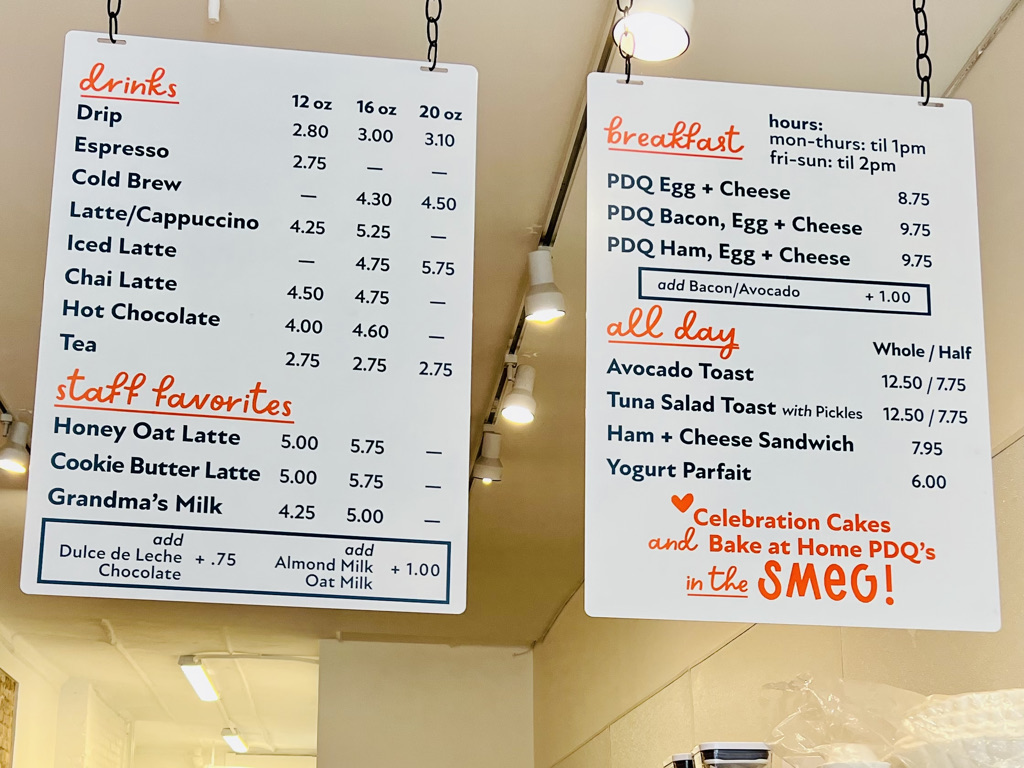 drinks 12 oz 16 oz 20 oz
Drip 2.80 3.00 3.10
Espresso 2.75 — —
Cold Brew — 4.30 4.50
Latte/Cappuccino 4.25 5.25 —
Iced Latte — 4.75 5.75
Chai Latte 4.50 4.75 —
Hot Chocolate 4.00 4.60 —
Tea 2.75 2.75 2.75
staff favorites
Honey Oat Latte 5.00 5.75 —
Cookie Butter Latte 5.00 5.75 —
Grandma's Milk 4.25 5.00 —
add
Dulce de Leche + .75
Chocolate
add
Almond Milk + 1.00
Oat Milk
breakfast
hours:
mon-thurs: til 1pm
fri-sun: til 2pm
PDQ Egg + Cheese 8.75
PDQ Bacon, Egg + Cheese 9.75
PDQ Ham, Egg + Cheese 9.75
add Bacon/Avocado + 1.00
all day Whole / Half
Avocado Toast 12.50 / 7.75
Tuna Salad Toast with Pickles 12.50 / 7.75
Ham + Cheese Sandwich 7.95
Yogurt Parfait 6.00
Celebration Cakes
and Bake at Home PDQ's
in the SMEG!